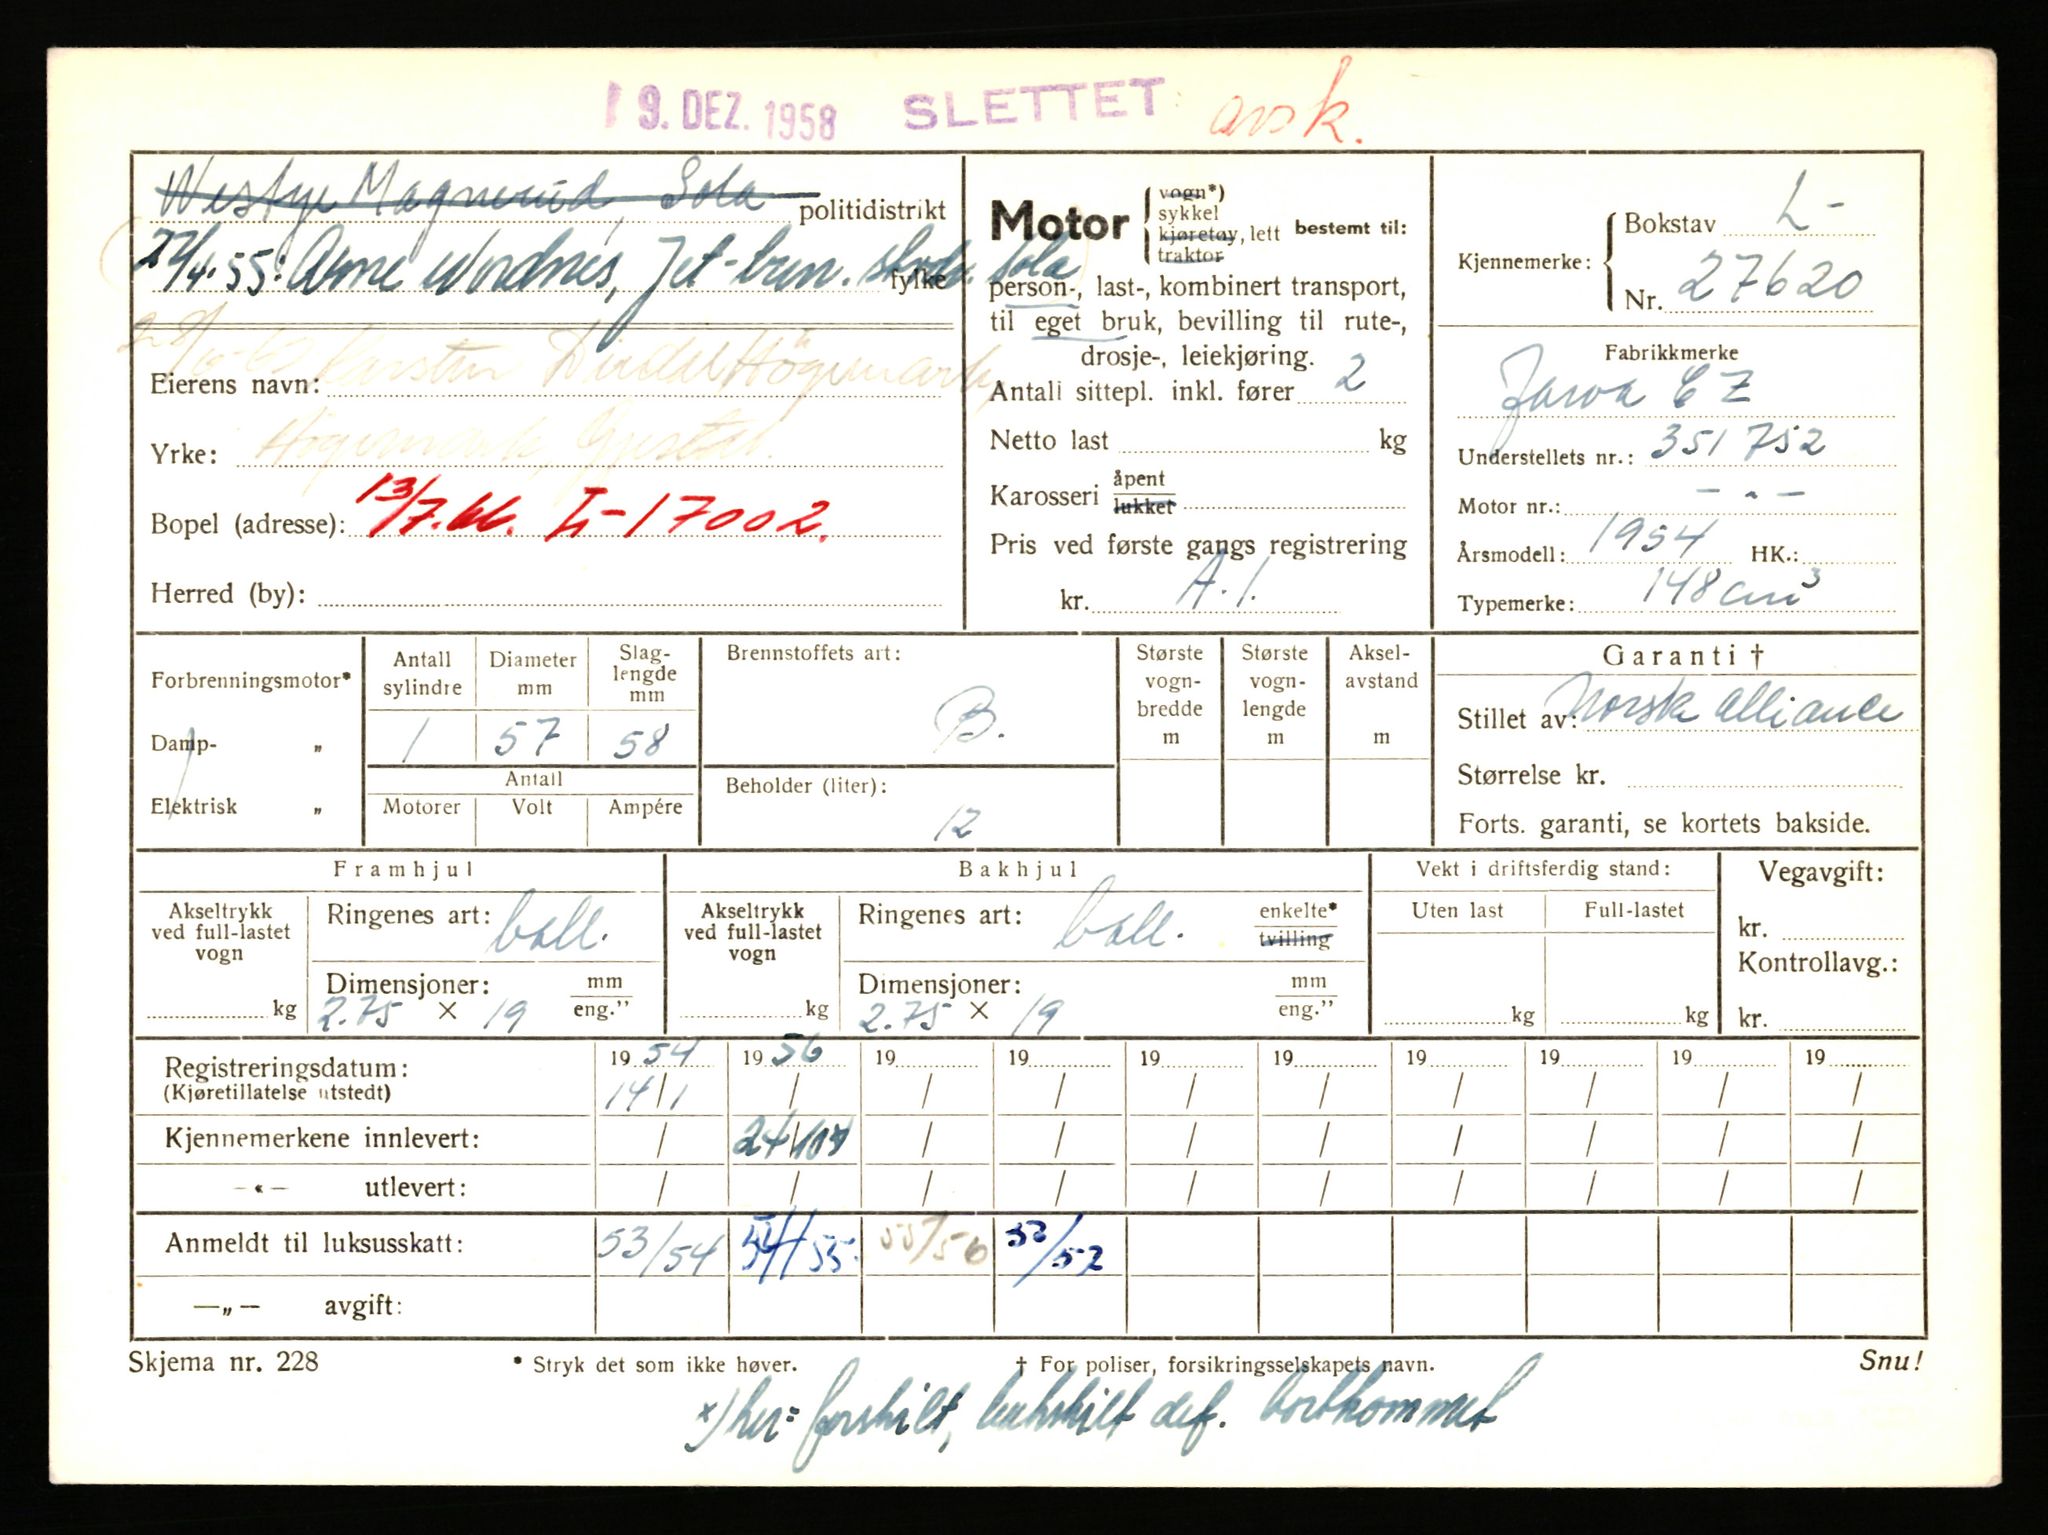 9. DEZ. 1958 SLETTET avsk.
Westye Magnerud, Sola politidistrikt
27/4.55: Arne Nordnes, Jet-tren. Sola
fylke
Karsten Högemark,
Eierens navn:
Högemark, Gjestal.
Yrke:
Bopel (adresse): 13/7.66. L-17002.
Herred (by):
Motor { vogn*) sykkel kjøretøy, lett traktor bestemt til:
person-, last-, kombinert transport,
til eget bruk, bevilling til rute-,
drosje-, leiekjøring.
Antall sittepl. inkl. fører 2
Netto last kg
Karosseri åpent lukket
Pris ved første gangs registrering
kr. A.1.
Kjennemerke: { Bokstav L-
Nr. 27620
Fabrikkmerke
Jawa CZ
Understellets nr.: 351752
Motor nr.: - " -
Årsmodell: 1954 HK.:
Typemerke: 148 cm³
Forbrenningsmotor*
Damp- „
Elektrisk „
Antall sylindre Diameter mm Slaglengde mm
1 57 58
Antall
Motorer Volt Ampére
Brennstoffets art:
B.
Beholder (liter):
12
Største vognbredde m
Største vognlengde m
Akselavstand m
Garanti †
Stillet av: Norsk Alliance
Størrelse kr.
Forts. garanti, se kortets bakside.
Framhjul
Akseltrykk ved full-lastet vogn
kg
Ringenes art: ball.
Dimensjoner: mm
2.75 × 19 eng.”
Bakhjul
Akseltrykk ved full-lastet vogn
kg
Ringenes art: ball. enkelte* tvilling
Dimensjoner: mm
2.75 × 19 eng.”
Vekt i driftsferdig stand:
Uten last Full-lastet
kg kg
Vegavgift:
kr.
Kontrollavg.:
kr.
Registreringsdatum: 19 54 19 56 19 19 19 19 19 19 19 19
(Kjøretillatelse utstedt) 14/1 / / / / / / / / /
Kjennemerkene innlevert: / 24/10 / / / / / / / /
-«- utlevert: / / / / / / / / / /
Anmeldt til luksusskatt: 53/54 54/55. 55/56
—„— avgift:
Skjema nr. 228 * Stryk det som ikke høver. † For poliser, forsikringsselskapets navn. Snu!
x) her = forskilt, bakskilt def. bortkommet